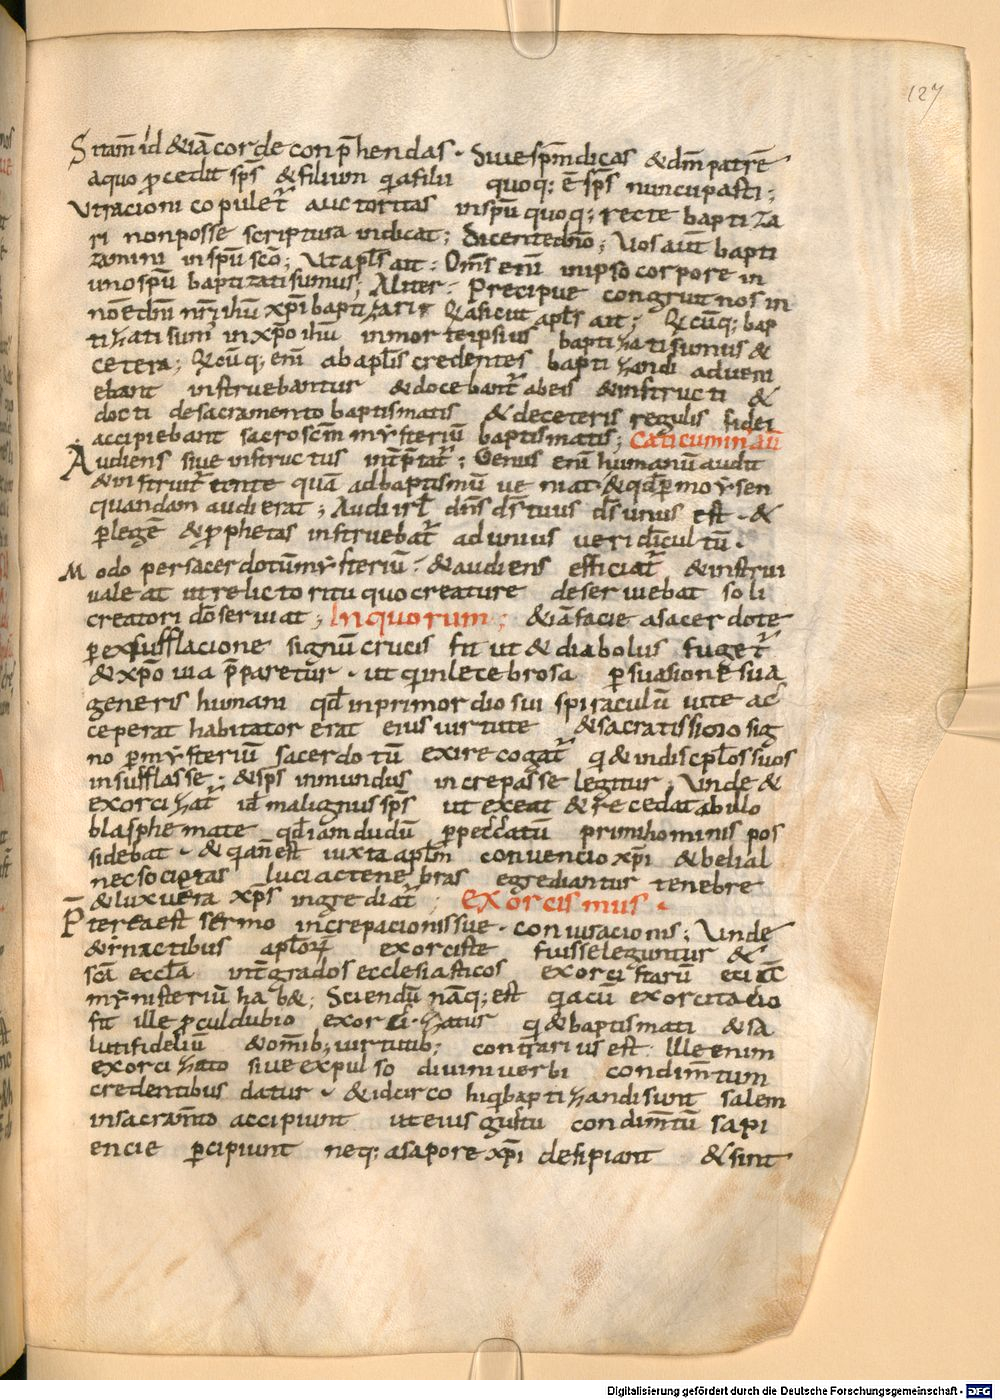 127
Si tam̄ id &iā corde conp̄hendas · Siue sp̄m dicas &dm̄ patrē
aquo ꝓcedit sp̄s &filium quia filii quoq; ē sp̄s nuncupasti;
Vtracioni copulet̄ auctoritas inspū quoq; recte baptiza
ri nonposse scriptura indicat; Dicente dn̄o; Vos aut̄ bapti
zamini inspū sc̄o; Vt apl̄s ait: Om̄s enī inipso corpore in
uno spū baptizati sumus; Aliter: Precipue congruit nos in
noē dn̄i nr̄i ihū xp̄i baptizari &ā sicut apl̄s ait; &cū q; bap
tizati sum; in xp̄o ihū inmorte ipsius baptizati sumus &
cetera; &cū q; enī ab apl̄is credentes baptizandi adueni
ebant instruebantur &docebant̄ abeis &instructi &
docti desacramento baptismatis &deceteris regulis fidei
accipiebant sacroscm̄ mẏsteriū baptismatis; Caticumin aū
Audiens siue instructus int̄p̄tat̄; Genus enī humanū audit
&instruit̄ quā adbaptismū ueniat &qd̄ ꝑ moẏsen
quandam audierat; Audi isrl̄ dn̄s ds̄ tuus ds̄ unus est · &
ꝑ legē &ꝓphetas instruebat̄ ad unius ueri dī cultū ·
Modo per sacerdotū mẏsteriū · &audiens efficiat̄ &instrui
ualeat ut relicto ritu quo creature deseruiebat soli
creatori dō seruiat; In quorum; &iā facie asacerdote
ꝑ exsufflacione signū crucis fit ut &diabolus fuget̄
&xp̄o uia p̄paretur · ut qui in lecebrosa ꝑsuasione sua
generis humani qd̄ inprimordio sui spiraculū uite ac
ceperat habitator erat eius uirtute &sacratissimo sig
no ꝑ mẏsteriū sacerdotū exire cogat̄ q &indiscipl̄os suos
insufflasse; &sp̄s inmundus increpasse legitur; Vnde &
exorcizat̄ id malignus sp̄s ut exeat &recedat abillo
blasphemate qd̄ iam dudū ꝑ peccatū primi hominis pos
sidebat · &quia n̄ est iuxta aplm̄ conuencio xp̄i &belial
nec societas luci ac tenebras egrediantur tenebre
&lux uera xp̄s ingrediat̄; Exorcismus ·
P̄terea est sermo increpacionis siue · coniuracionis; Vnde
&in actibus aplorū exorciste fuisse leguntur &
scā eccl̄a int̄ grados ecclesiasticos exorcistarū etiā
mẏnisteriū hab&; Sciendū nāq; est quia cū exorcitacio
fit ille ꝓcul dubio exorci·zatur q &baptismati &sa
luti fideliū &omib; uirtutib; contrarius est: Ille enim
exorcizato siue expulso diuini uerbi condimtum
credentibus datur · &idcirco hi qui baptizandi sunt salem
in sacram̄to accipiunt ut eius gustu condimt̄ū sapi
encie percipiunt neq; asapore xp̄i desipiant &sint
Digitalisierung gefördert durch die Deutsche Forschungsgemeinschaft - DFG